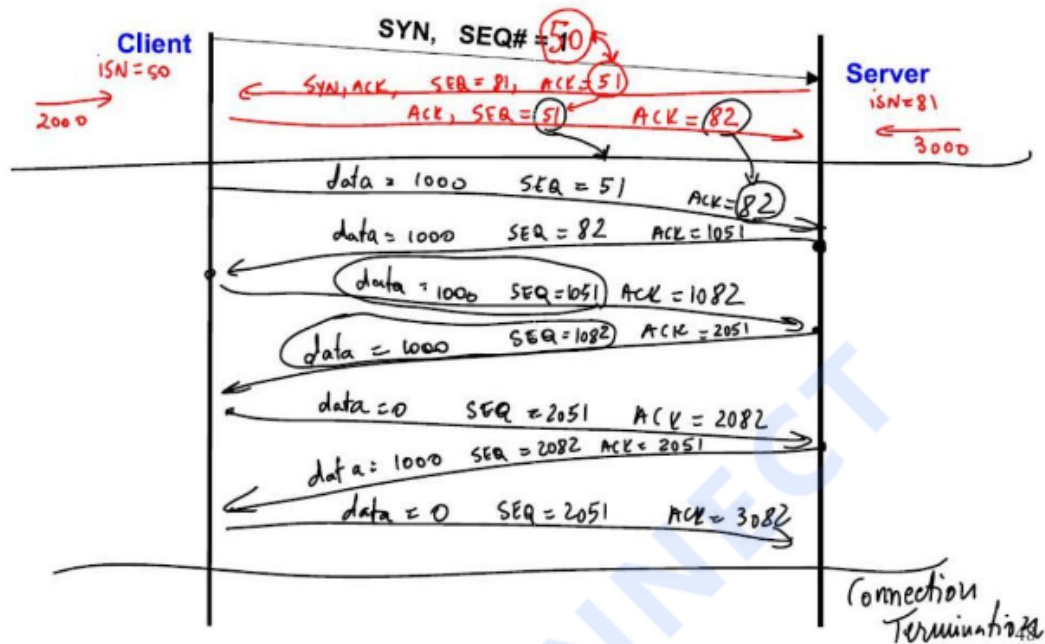 SYN, SEQ# = 50
Client
iSN=50
Server
iSN=81
SYN, ACK, SEQ = 81, ACK=51
2000
ACK, SEQ = 51 ACK = 82
3000
data = 1000 SEQ = 51 ACK=82
data = 1000 SEQ = 82 ACK=1051
data = 1000 SEQ=1051 ACK =1082
data = 1000 SEQ=1082 ACK =2051
data =0 SEQ =2051 ACK = 2082
data = 1000 SEQ =2082 ACK = 2051
data = 0 SEQ =2051 ACK = 3082
Connection
Termination
NNECT